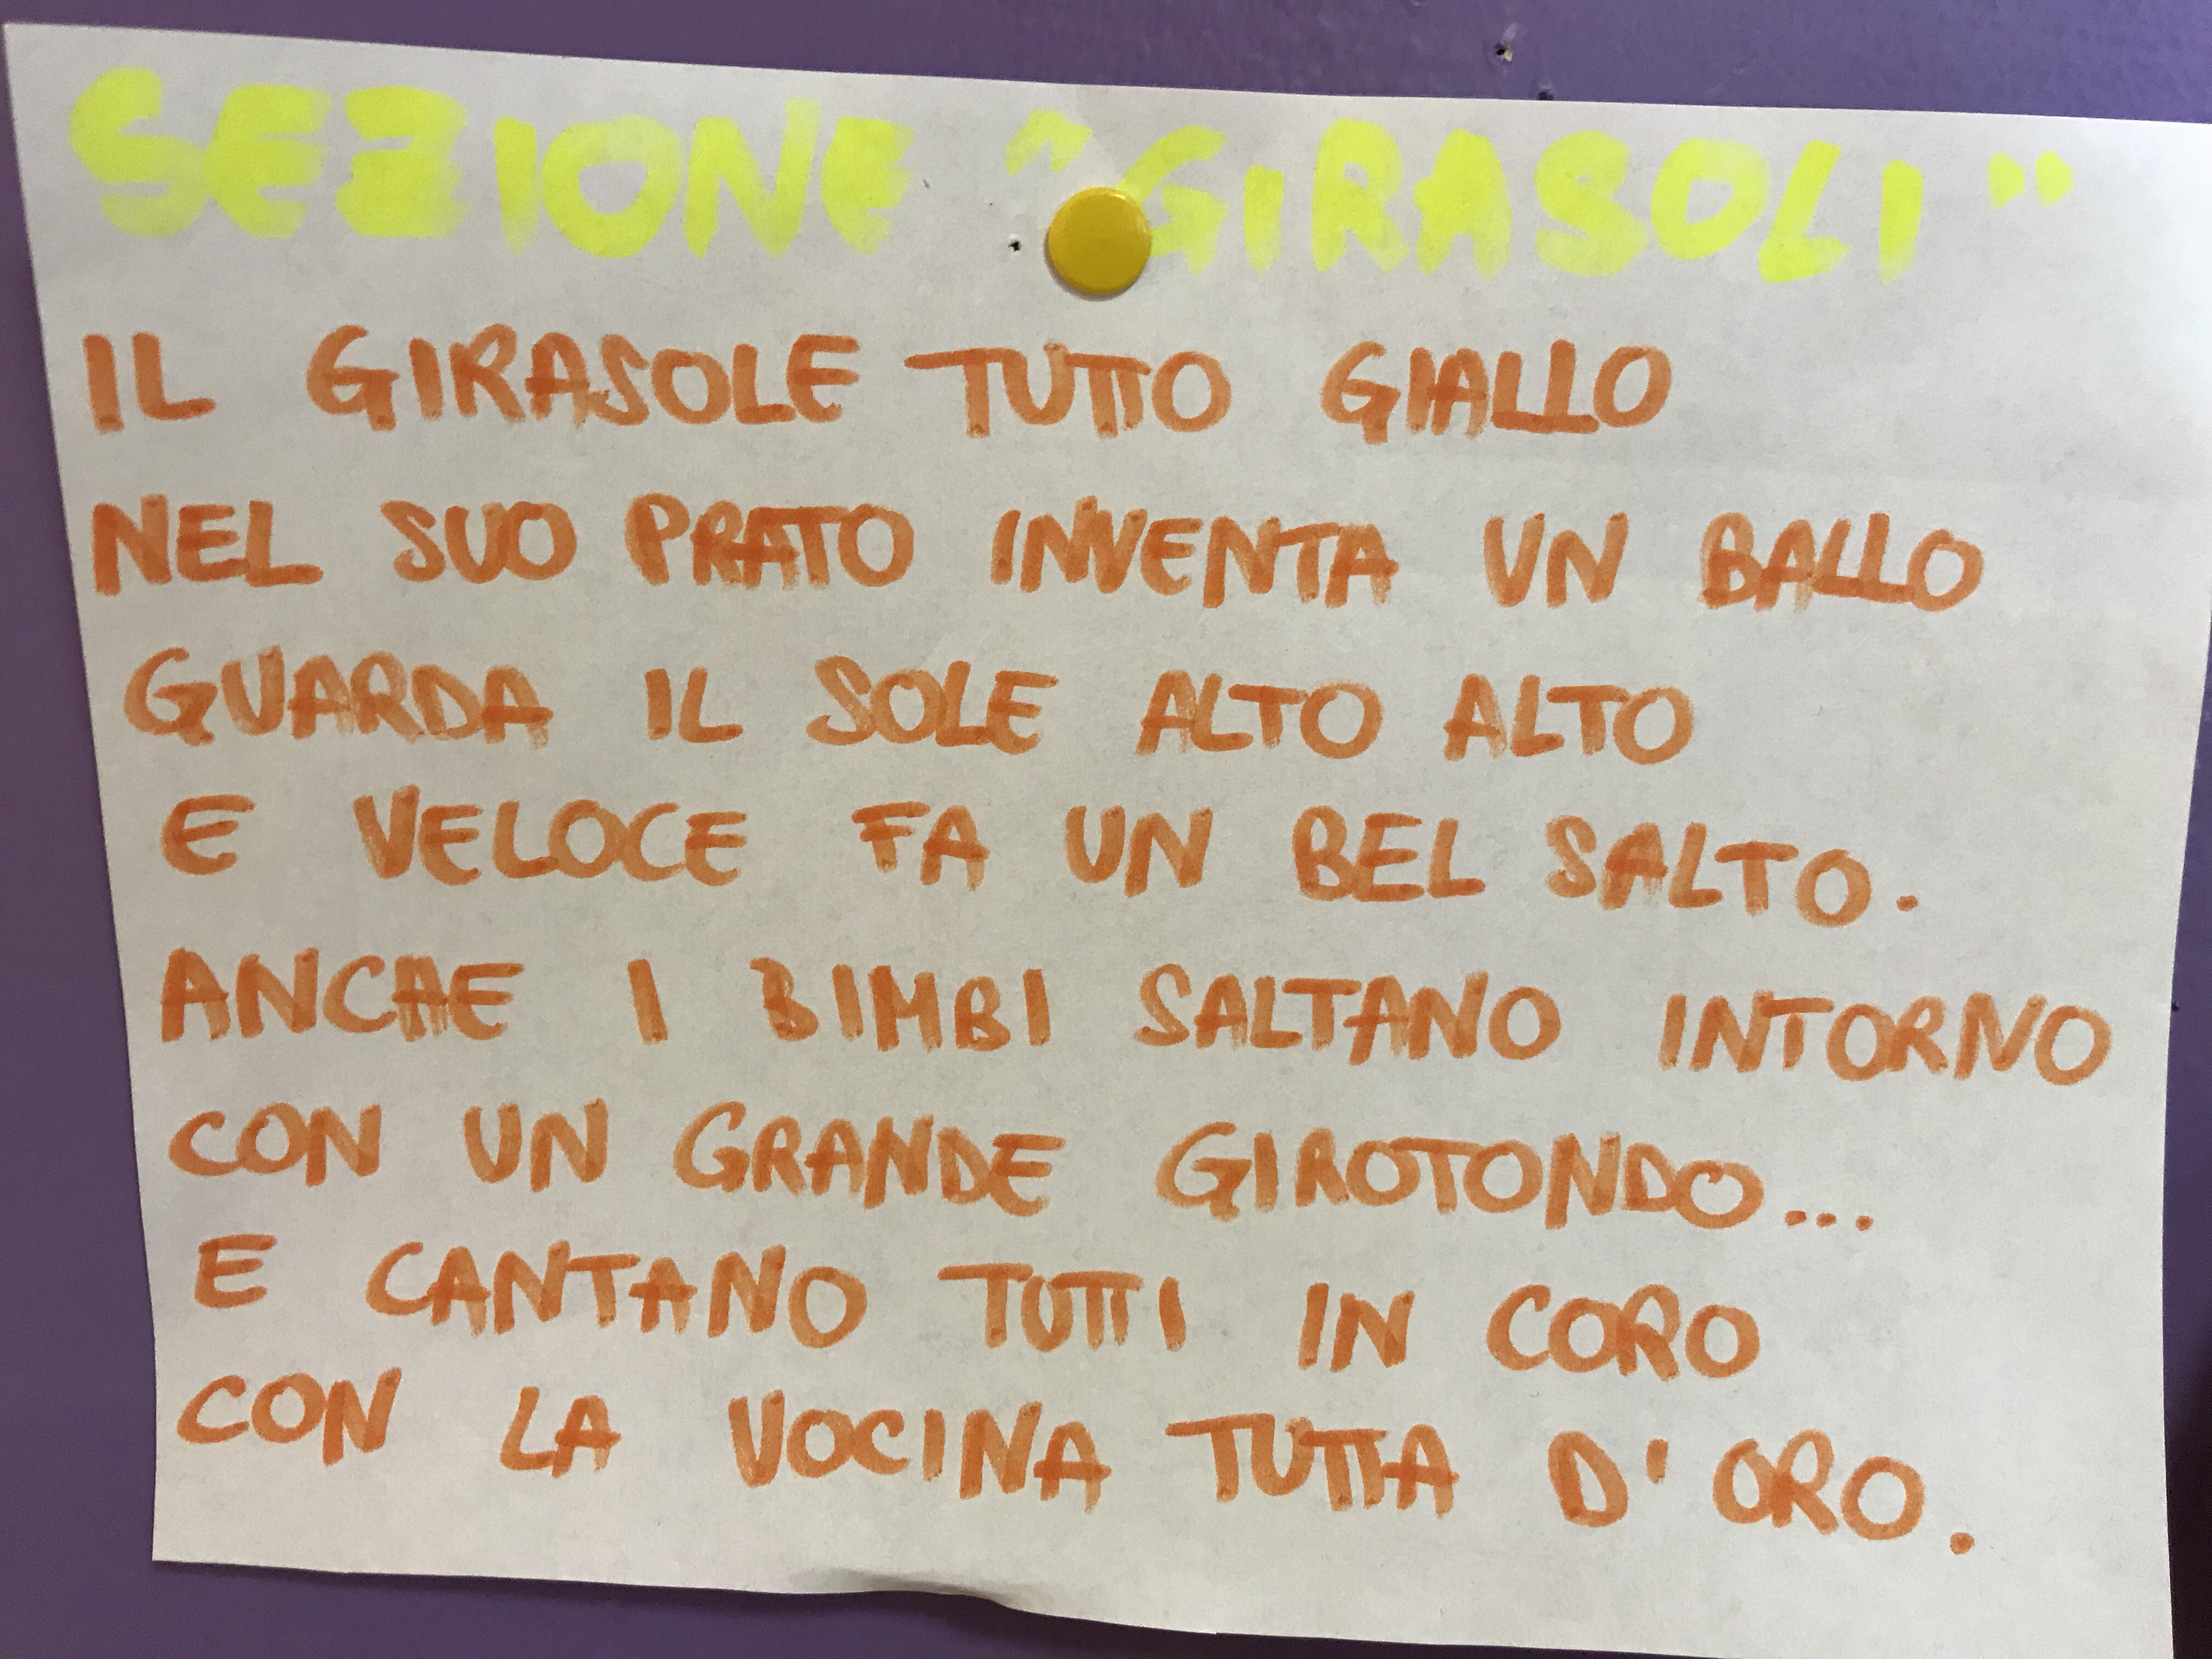 SEZIONE "GIRASOLI"
IL GIRASOLE TUTTO GIALLO
NEL SUO PRATO INVENTA UN BALLO
GUARDA IL SOLE ALTO ALTO
E VELOCE FA UN BEL SALTO.
ANCHE I BIMBI SALTANO INTORNO
CON UN GRANDE GIROTONDO...
E CANTANO TUTTI IN CORO
CON LA VOCINA TUTTA D'ORO.